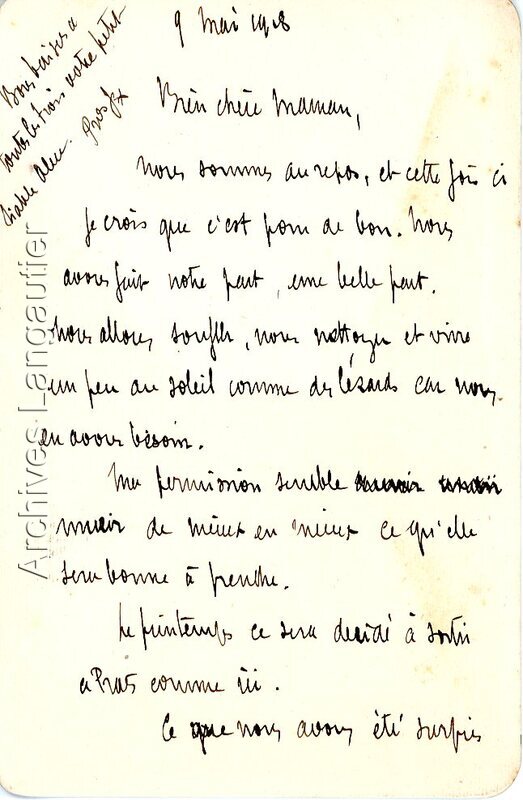 9 mai 1918
Bien chère maman,
Nous sommes au repos, et cette fois ci
je crois que c'est pour de bon. Nous
avons fait notre part, une belle part.
Nous allons souffler, nous nettoyer et vivre
un peu au soleil comme des lézards car nous
en avons besoin.
Ma permission semble
murir de mieux en mieux ce qu'elle
sera bonne à prendre.
Le printemps ce sera décidé à sortir
a Prats comme ici.
Ce que nous avons été surpris
Bons baisers a
toutes les trois votre petit
diable bleu.
Archives Langautier